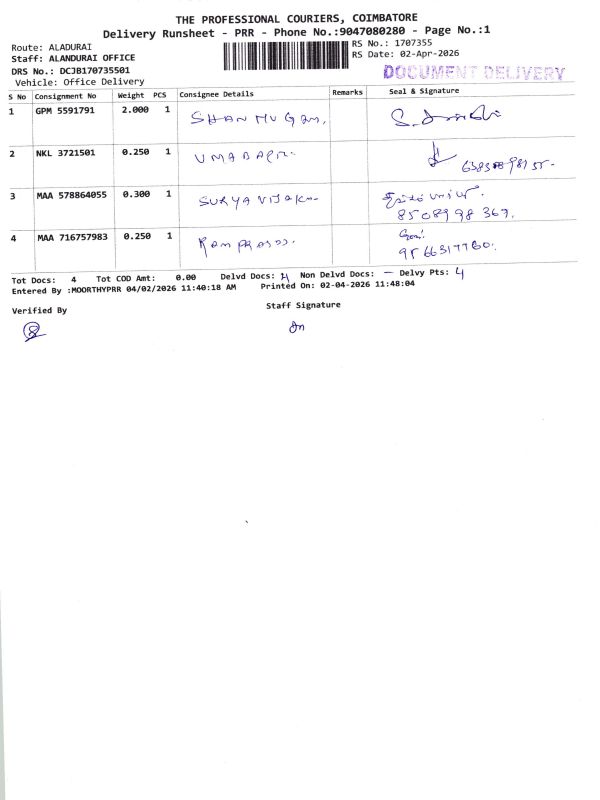 THE PROFESSIONAL COURIERS, COIMBATORE
Delivery Runsheet - PRR - Phone No.:9047080280 - Page No.:1
Route: ALADURAI
RS No.: 1707355
Staff: ALANDURAI OFFICE
RS Date: 02-Apr-2026
DRS No.: DCJB170735501
DOCUMENT DELIVERY
Vehicle: Office Delivery
S No Consignment No Weight PCS Consignee Details Remarks Seal & Signature
1 GPM 5591791 2.000 1 SHANMUGAM,
2 NKL 3721501 0.250 1
3 MAA 578864055 0.300 1 SURYA VIJAK
8508998367.
4 MAA 716757983 0.250 1 RAMPRASD.
9566317760.
Tot Docs: 4 Tot COD Amt: 0.00 Delvd Docs: 4 Non Delvd Docs: — Delvy Pts: 4
Entered By :MOORTHYPRR 04/02/2026 11:40:18 AM Printed On: 02-04-2026 11:48:04
Verified By
Staff Signature